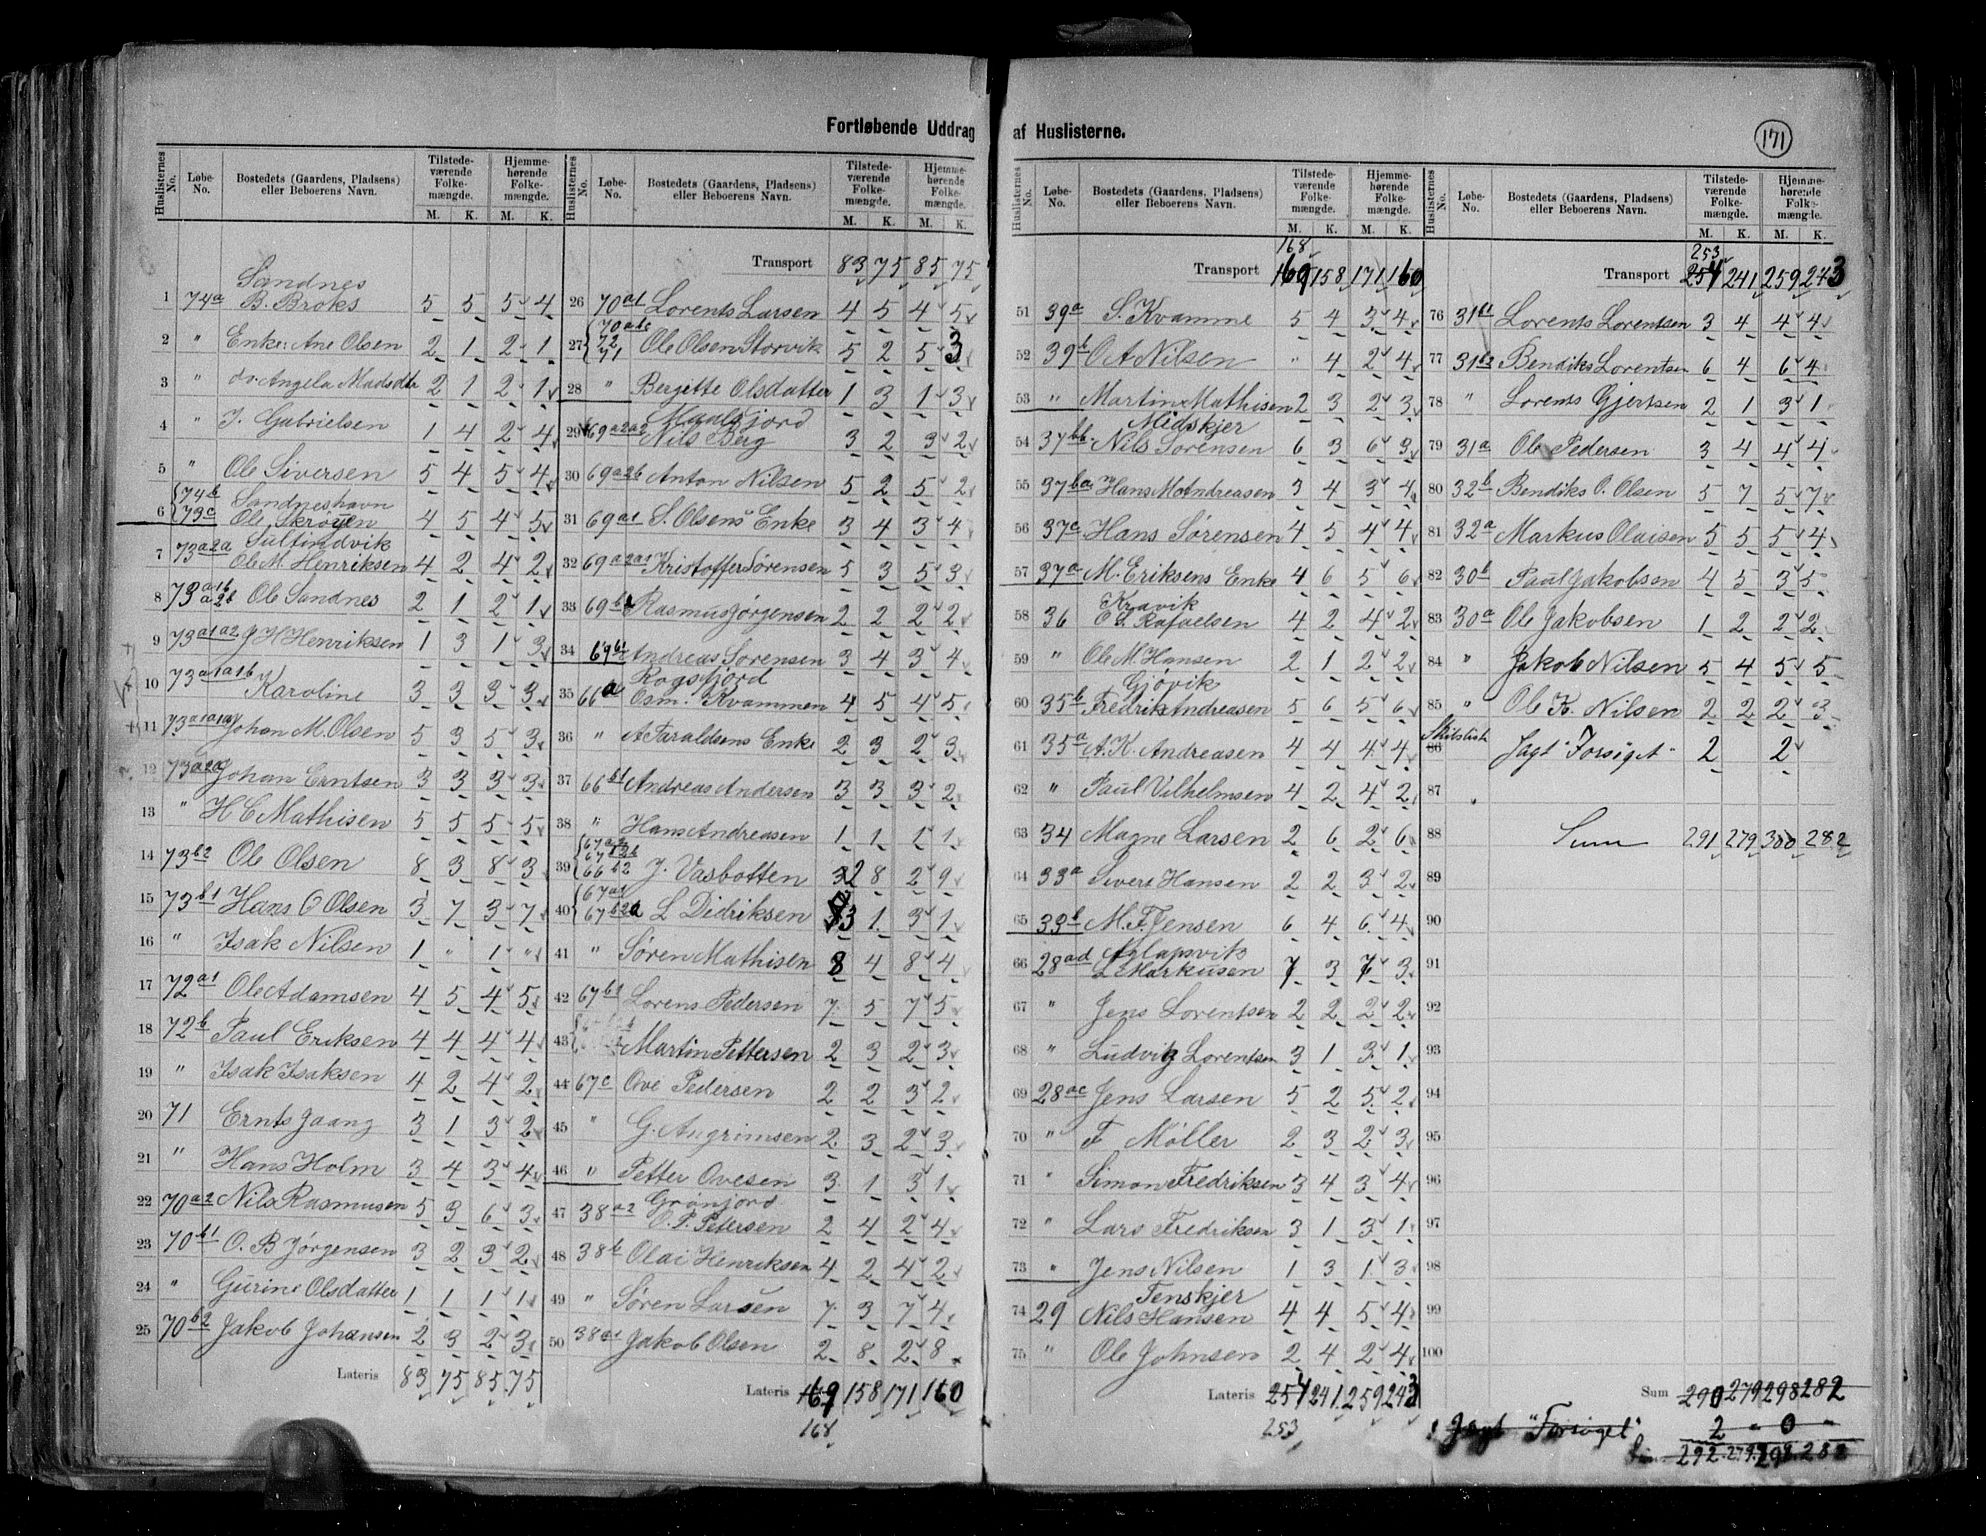 Fortløbende Uddrag af Huslisterne.
171
Huslisternes No. Løbe-No. Bostedets (Gaardens, Pladsens) eller Beboerens Navn. Tilstedeværende Folkemængde. M. K. Hjemmehørende Folkemængde. M. K.
Sandnes
1 74a B. Broks 5 5 5 4
2 " Enke: Ane Olsen 2 1 2 1
3 " do Angela Madsdtr 2 1 2 1
4 " J. Gabrielsen 1 4 2 4
5 " Ole Siversen 5 4 5 4
74b Sandneshavn
6 73c Ole Skrøven 4 5 4 5
Sultindvik
7 73a2a Ole M. Henriksen 4 2 4 2
8 73a1b a2b Ole Sandnes 2 1 2 1
9 73a1a2 J H Henriksen 1 3 1 3
10 73a1a1b Karoline 3 3 3 3
11 73a1a1a Johan M. Olsen 5 3 5 3
12 73a2a Johan Erntsen 3 3 3 3
13 " H C Mathisen 5 5 5 5
14 73b2 Ole Olsen 8 3 8 3
15 73b1 Hans O Olsen 3 7 3 7
16 " Isak Nilsen 1 " 1 "
17 72a1 Ole Adamsen 4 5 4 5
18 72b Paul Eriksen 4 4 4 4
19 " Isak Isaksen 4 2 4 2
20 71 Ernts Jaang 3 1 3 2
21 " Hans Holm 3 4 3 4
22 70a2 Nils Rasmusen 5 3 6 3
23 70b1 O. B Jørgensen 3 2 3 2
24 " Gurine Olsdatter 1 1 1 1
25 70b2 Jakob Johansen 2 3 2 3
Lateris 83 75 85 75
Huslisternes No. Løbe-No. Bostedets (Gaardens, Pladsens) eller Beboerens Navn. Tilstedeværende Folkemængde. M. K. Hjemmehørende Folkemængde. M. K.
Transport 83 75 85 75
26 70a1 Lorents Larsen 4 5 4 5
70a1b
27 72 71 Ole Olsen Storvik 5 2 5 3
28 " Bergette Olsdatter 1 3 1 3
29 69a2a2 Nils Berg 3 2 3 2
30 69a2b Anton Nilsen 5 2 5 2
31 69a1 S. Olsens Enke 3 4 3 4
32 69a2a1 Kristoffer Sørensen 5 3 5 3
33 69b Rasmus Jørgensen 2 2 2 2
34 69b1 Andreas Sørensen 3 4 3 4
Rogsfjord
35 66a Osm. Kvammen 4 5 4 5
36 " A Taraldsens Enke 2 3 2 3
37 66b1 Andreas Andersen 3 3 3 2
38 " Hans Andreasen 1 1 1 1
67a2
67b2b
39 66b2 J. Vasbotten 2 8 2 9
67a1
40 67b2a L Didriksen 3 1 3 1
41 " Søren Mathisen 8 4 8 4
42 67b1 Lorens Pedersen 7 5 7 5
43 Martin Pettersen 2 3 2 3
44 67c Ove Pedersen 2 2 3 2
45 " G. Angrimsen 2 3 2 3
46 " Petter Ovesen 3 1 3 1
Grønjord
47 38a2 O. P. Petersen 2 4 2 4
48 38b Olai Henriksen 4 2 4 2
49 " Søren Larsen 7 3 7 4
50 38a1 Jakob Olsen 2 8 2 8
Lateris 169 158 171 160
168
Huslisternes No. Løbe-No. Bostedets (Gaardens, Pladsens) eller Beboerens Navn. Tilstedeværende Folkemængde. M. K. Hjemmehørende Folkemængde. M. K.
168
Transport 169 158 171 160
51 39a S. Kvamme 5 4 3 4
52 39b O A Nilsen " 4 2 4
53 " Martin Mathisen 2 3 2 3
Midskjer
54 37bb Nils Sørensen 6 3 6 3
55 37ba Hans M Andreasen 3 4 3 4
56 37c Hans Sørensen 4 5 4 4
57 37a M. Eriksens Enke 4 6 5 6
Kravik
58 36 E L Rafaelsen 4 2 4 2
59 " Ole M. Hansen 2 1 2 2
Gjøvik
60 35b Fredrik Andreasen 5 6 5 6
61 35a A. K. Andreasen 4 4 4 4
62 " Paul Vilhelmsen 4 2 4 2
63 34 Magne Larsen 2 6 2 6
64 33a Sivert Hansen 2 2 3 2
65 33b M. F. Jensen 6 4 6 4
Aglapsvik
66 28ad L Markusen 7 3 7 3
67 " Jens Lorentsen 2 2 2 2
68 " Ludvig Lorentsen 3 1 3 1
69 28ac Jens Larsen 5 2 5 2
70 " F Møller 2 3 2 3
71 " Simon Fredriksen 3 4 3 4
72 " Lars Fredriksen 3 1 3 1
73 " Jens Nilsen 1 3 1 3
Tenskjer
74 29 Nils Hansen 4 4 5 4
75 " Ole Johnsen 2 4 2 4
Lateris 254 241 259 243
253
Huslisternes No. Løbe-No. Bostedets (Gaardens, Pladsens) eller Beboerens Navn. Tilstedeværende Folkemængde. M. K. Hjemmehørende Folkemængde. M. K.
253
Transport 254 241 259 243
76 31b1 Lorents Lorentsen 3 4 4 4
77 31b2 Bendiks Lorentsen 6 4 6 4
78 " Lorents Gjertsen 2 1 3 1
79 31a Ole Pedersen 3 4 4 4
80 32b Bendiks O. Olsen 5 7 5 7
81 32a Markus Olaisen 5 5 5 4
82 30b Paul Jakobsen 4 5 3 5
83 30a Ole Jakobsen 1 2 2 2
84 " Jakob Nilsen 5 4 5 5
85 " Ole K. Nilsen 2 2 2 3
Skibsliste
86 Jagt "Forsøget" 2 2
87 "
88 Sum 291 279 300 282
89
90
91
92
93
94
95
96
97
98
99
100
Sum 290 279 298 282
Jagt "Forsøget" 2 - 0 -
292 279 298 282